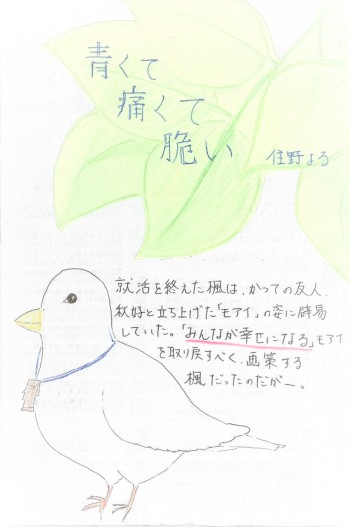 青くて
痛くて
脆い
住野よる
就活を終えた楓は、かつての友人、
秋好と立ち上げた「モアイ」の姿に辟易
していた。「みんなが幸せになる」モアイ
を取り戻すべく、画策する
楓だったのだが―。